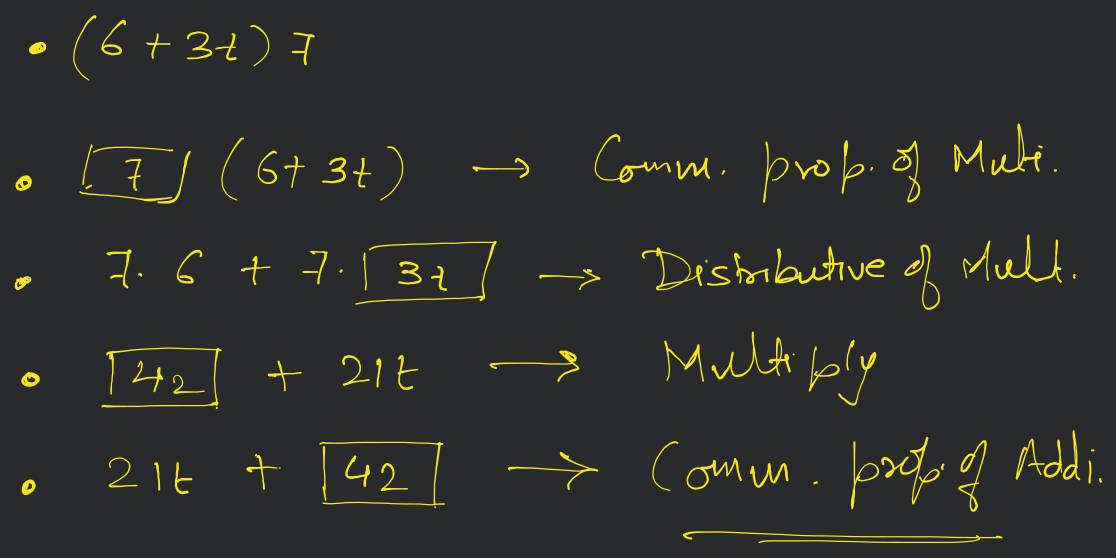 • (6 + 3t) 7
• 7 (6 + 3t) → Comm. prop. of Multi.
• 7. 6 + 7. 3t → Distributive of Mult.
• 42 + 21t → Multiply
• 21t + 42 → Comm. prop. of Addi.